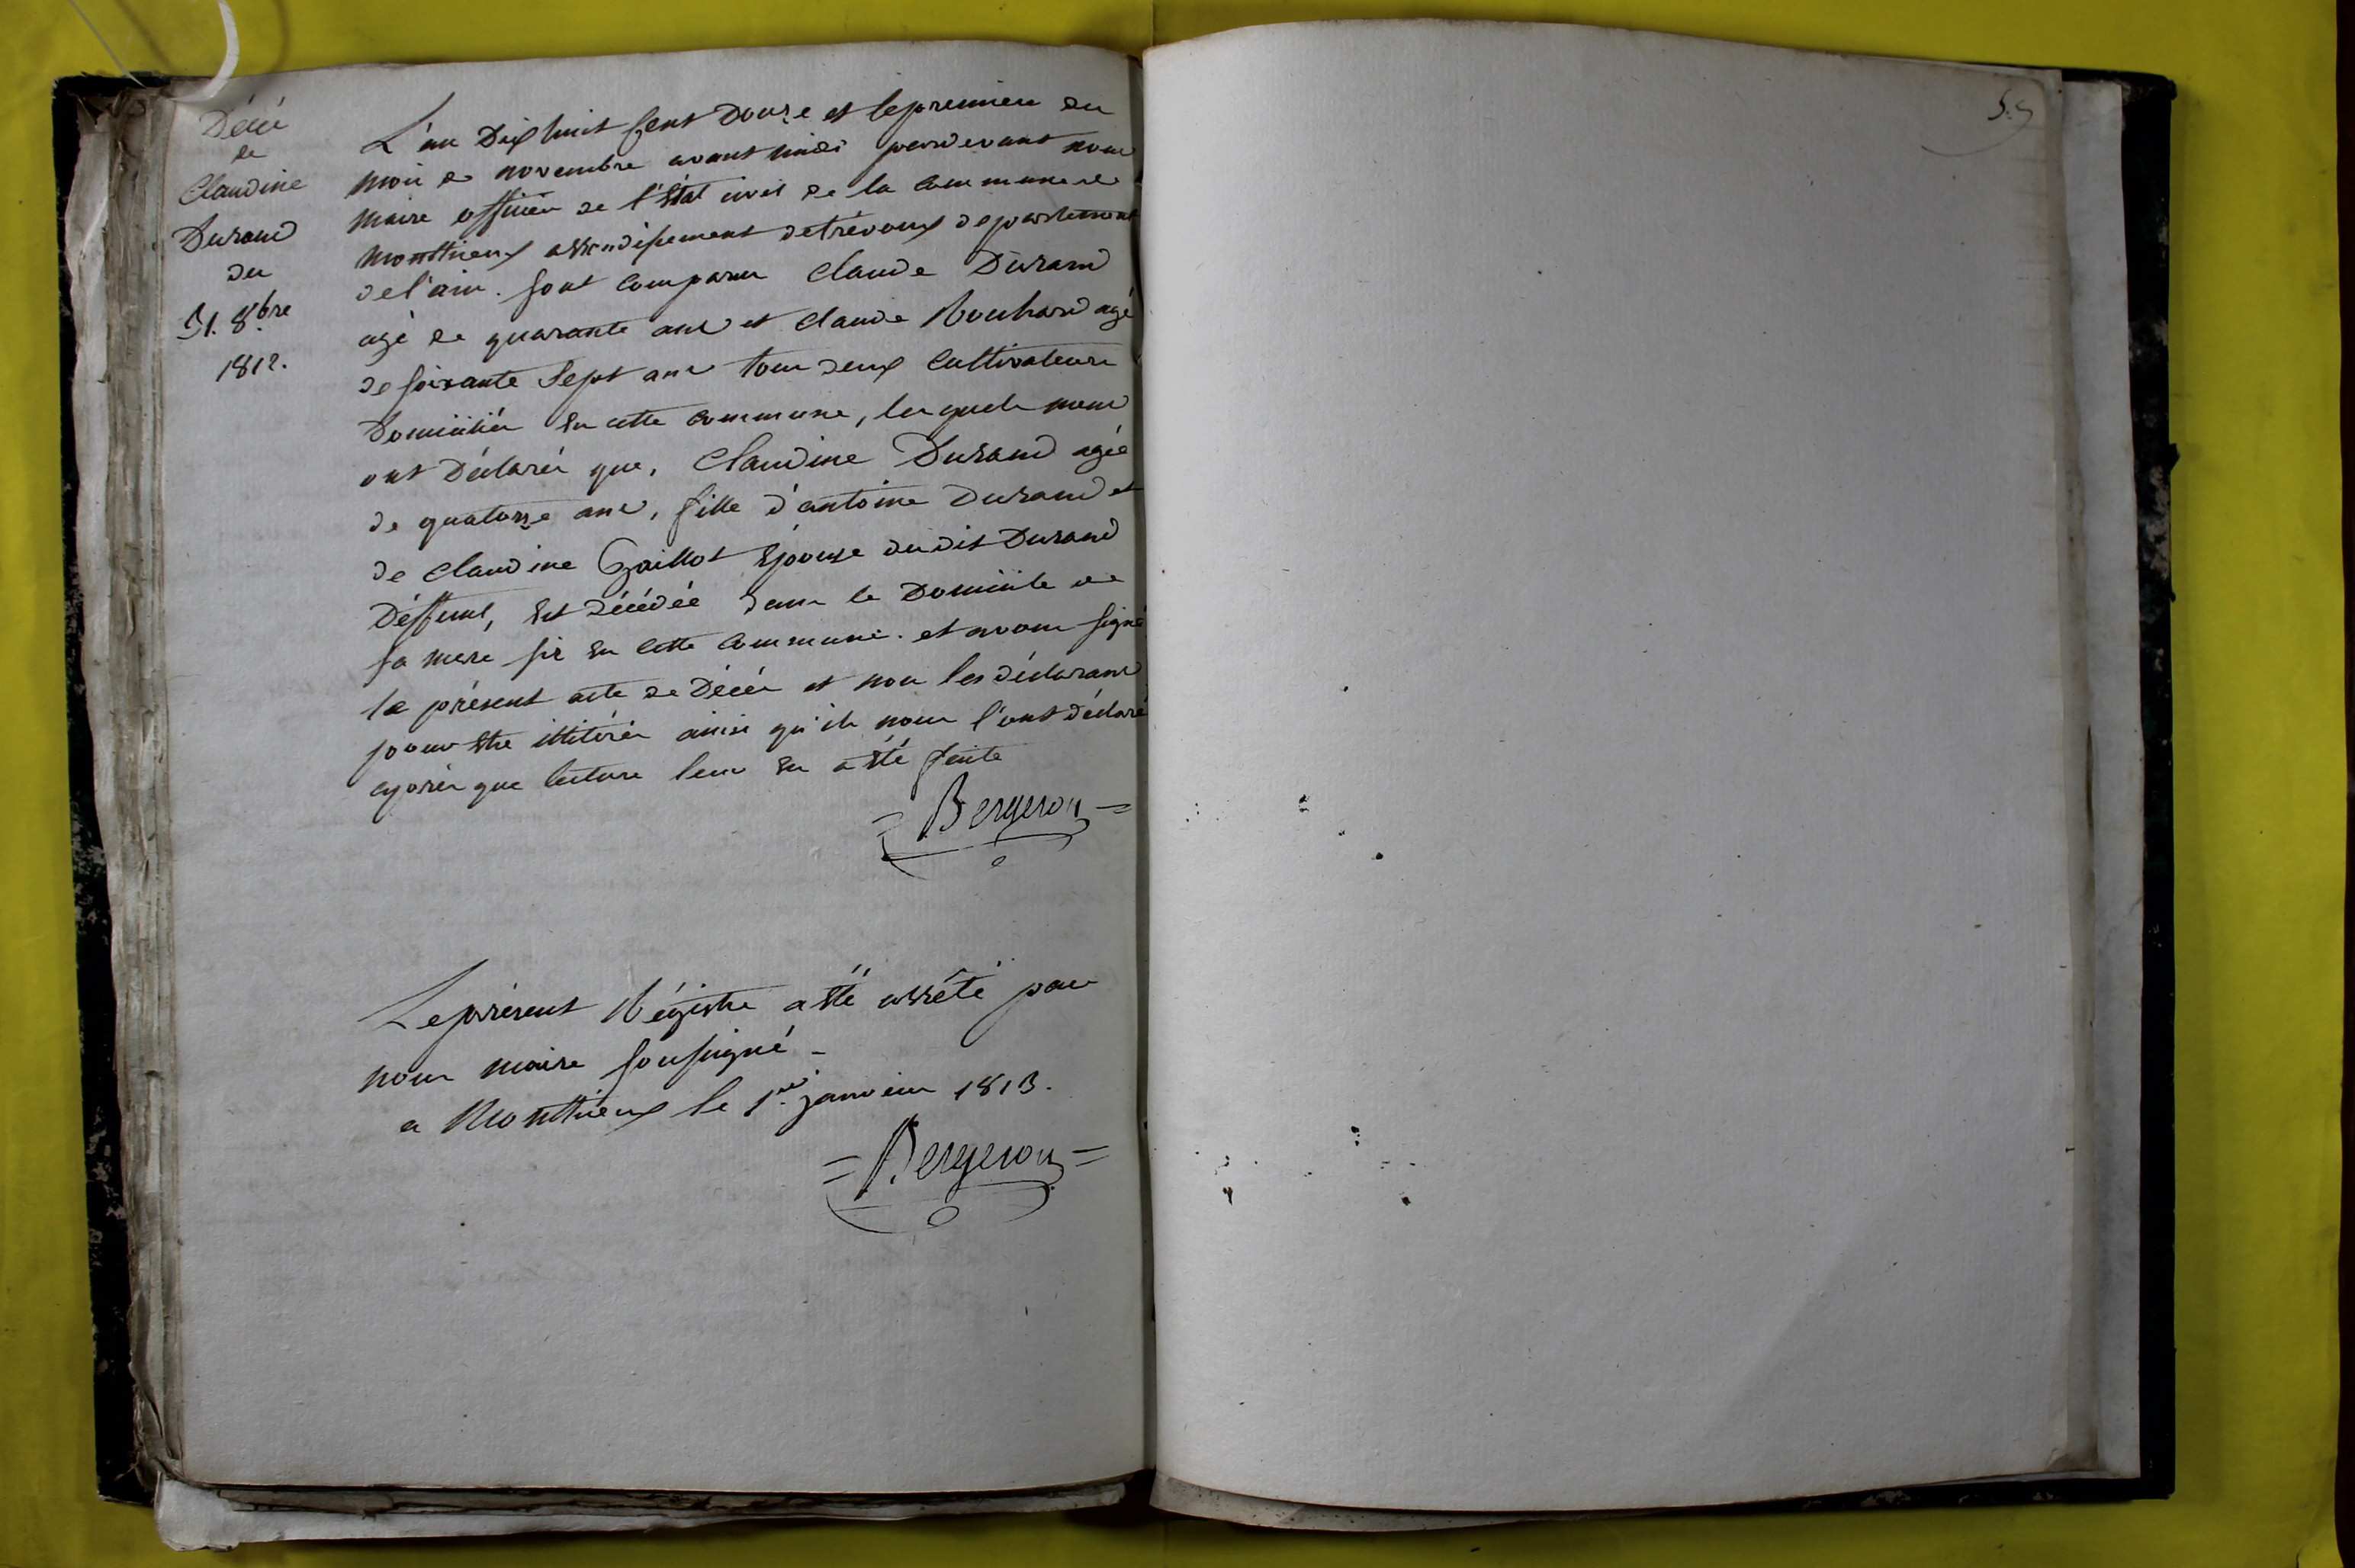 Décé
de
Claudine
Durand
du
31. 8.bre
1812.
L'an Dix huit Cent Douze et le premier du
mois de novembre avant midi pardevant nous
maire officier de l'Etat civil de la commune de
Monthieux arrondissement de trévoux departement
de l'ain. sont comparu Claude Durand
agé de quarante ans et Claude Bouhard agé
de soixante Sept ans tous deux Cultivateurs
Domiciliés en cette commune, lesquels nous
ont Déclarés que, Claudine Durand agée
de quatorze ans, fille d'antoine Durand et
de Claudine Gaillot Epouse dudit Durand
Déffunt, Est décédée dans le Domicile de
sa mere sis en cette commune. et avons signé
le présent acte de Décés et non les déclarans
pour Etre illitérés ainsi qu'ils nous l'ont déclaré
aprés que lecture leur en a été faite
= Bergeron =
Le présent Régistre a été arrêté par
nous maire soussigné -
a Monthieux le 1er janvier 1813.
= Bergeron =